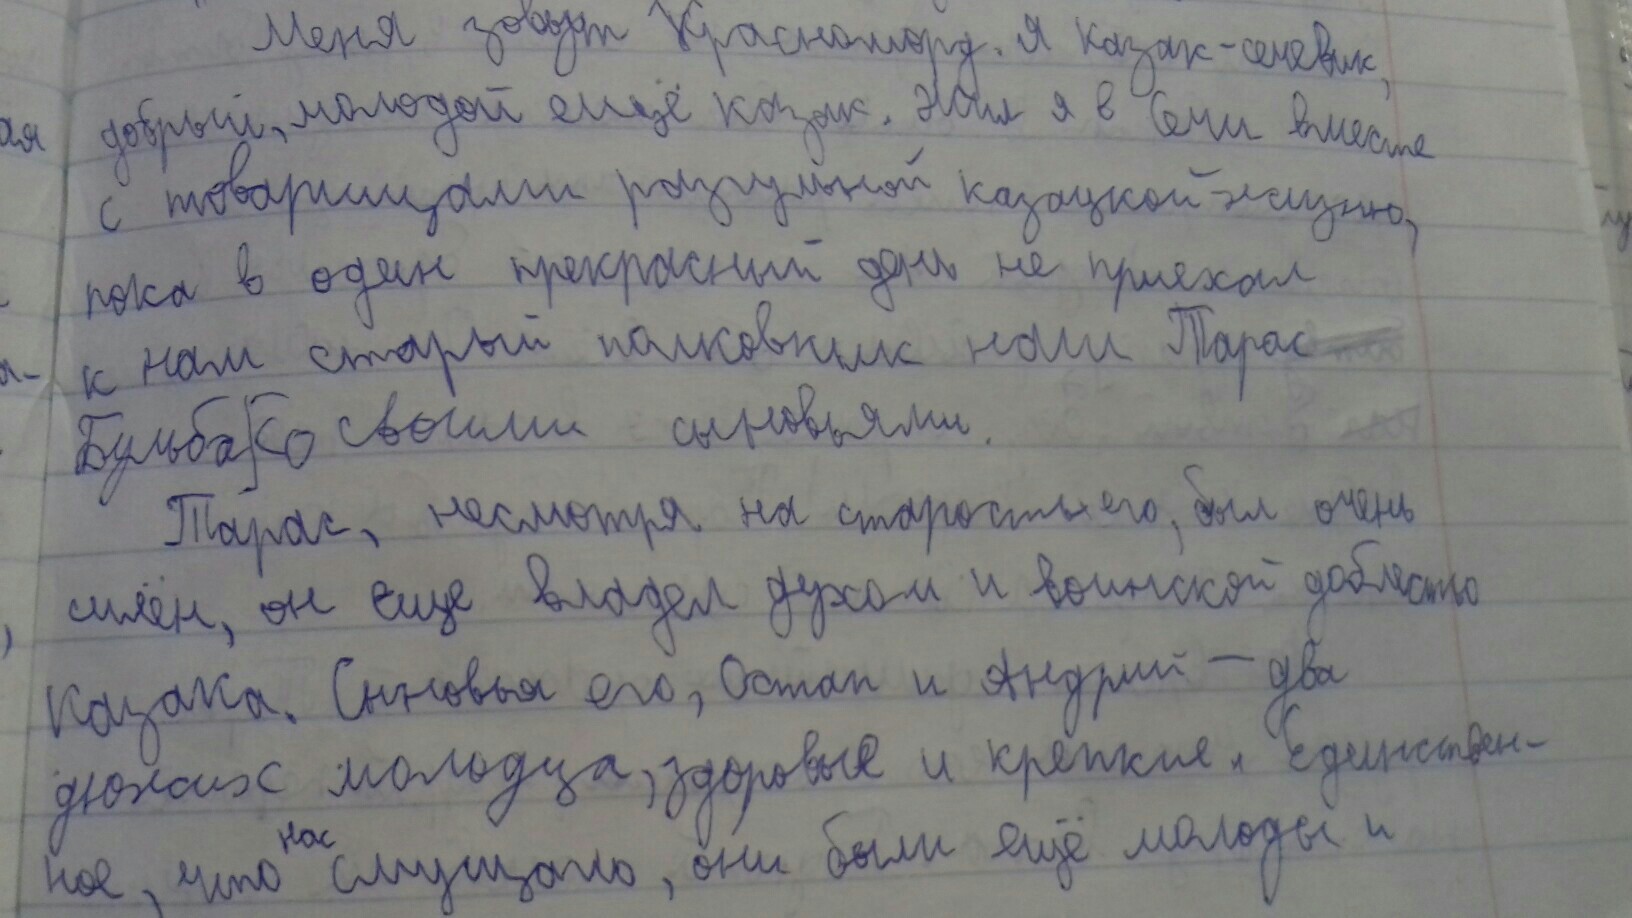 Меня зовут Красноморд. Я казак-сечевик,
добрый, молодой ещё казак. Жил я в Сечи вместе
с товарищами разгульной казацкой жизнью,
пока в один прекрасный день не приехал
к нам старый полковник наш Тарас
Бульба со своими сыновьями.
Тарас, несмотря на старость его, был очень
силён, он еще владел духом и воинской доблестью
казака. Сыновья его, Остап и Андрий — два
дюжих молодца, здоровые и крепкие. Единствен-
ное, что нас смущало, они были ещё молоды и